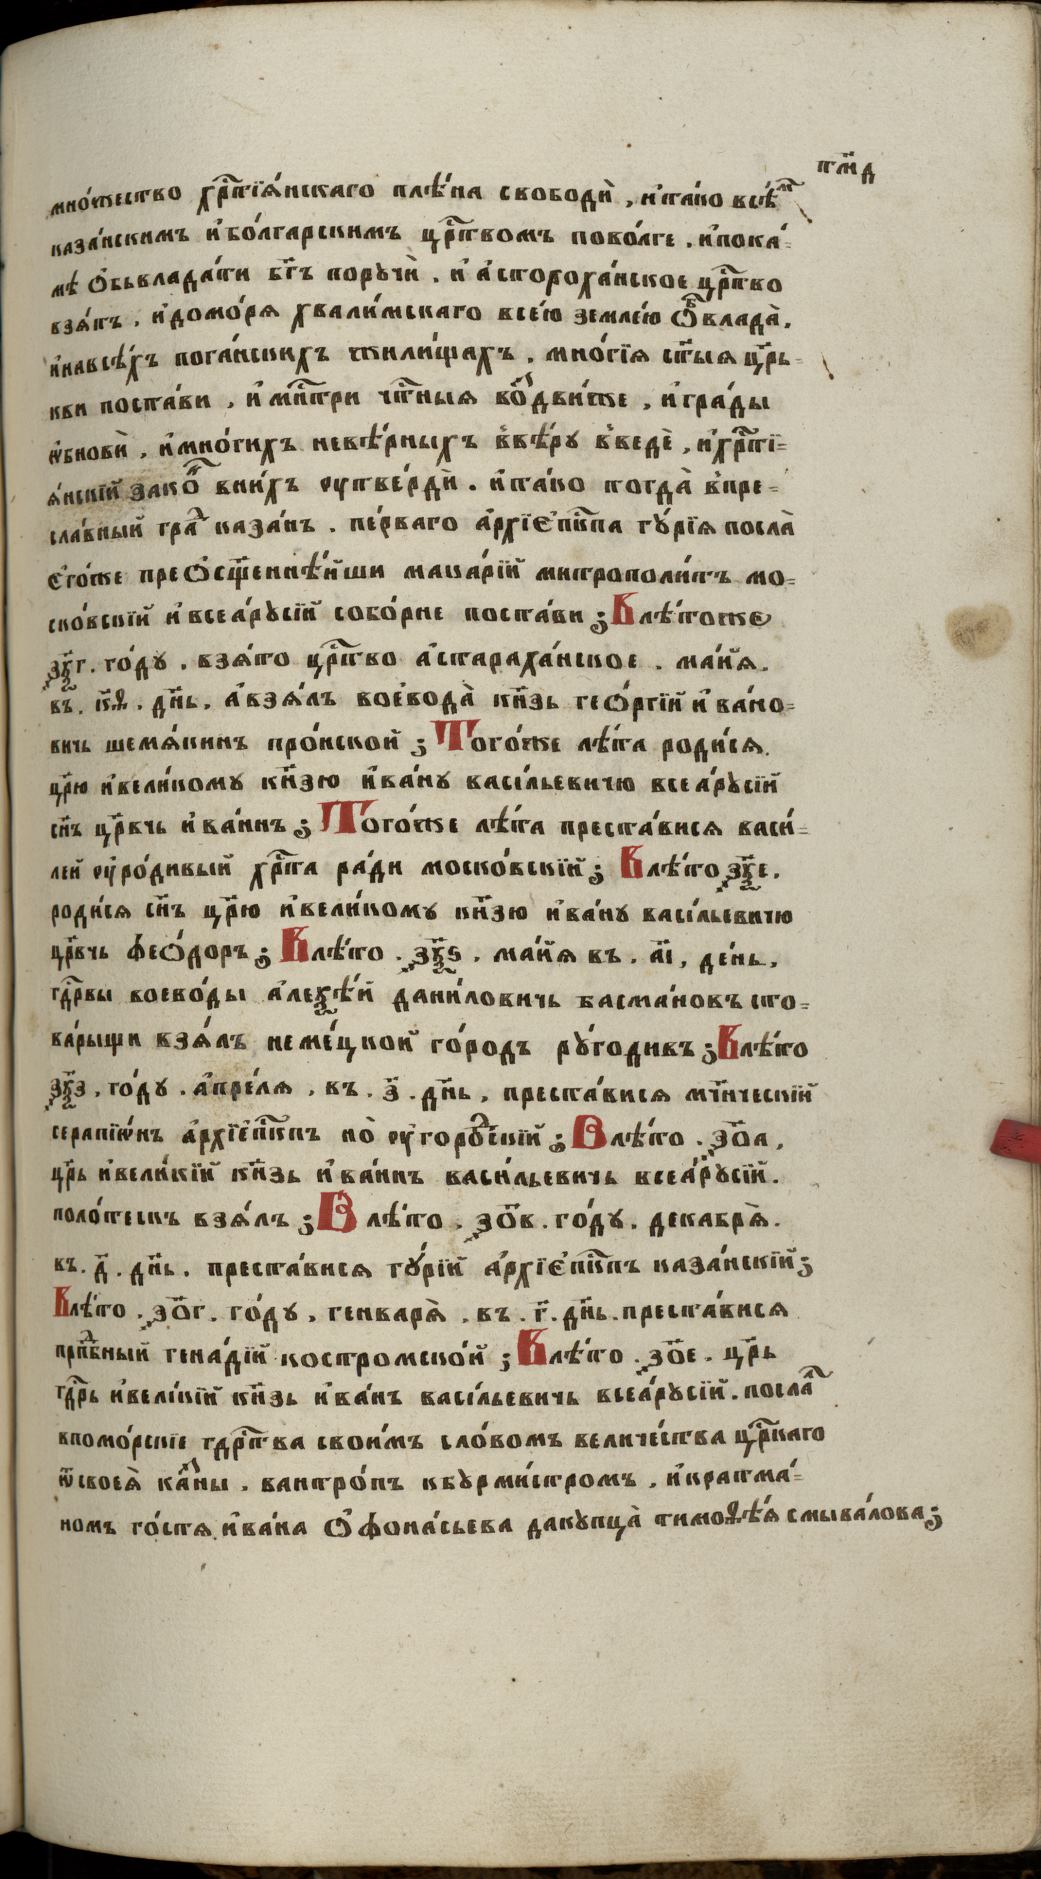 рм҃д
мно́жество хрⷭ҇тїѧ́нскаго плѣ́на свободѝ, и҆та́ко всѣ́мъ
каза́нскимъ и҆бо́лгарскимъ црⷭ҇твомъ пово́лге. и҆пока́=
мѣ ѻ҆бьвлада́ти бг҃ъ поручѝ. и҆ а҆стороха́нское црⷭ҇тво
взѧ́тъ. и҆домо́рѧ хвали́мскаго все́ю земле́ю ѡ҆бвлада̀.
и҆навсѣ́хъ пога́нскихъ жилищахъ. мно́гїѧ ст҃ыѧ цр҃ь=
кви поста́ви, и҆ мⷭ҇три чтⷭ҇ныѧ во́здви́же, и҆гра́ды
ѡ҆бновѝ, и҆мно́гихъ невѣ́рныхъ ввѣ́ру введѐ, и҆хрⷭ҇тї=
ѧ́нскїй зако́нъ вни́хъ ѹ҆тве́рдѝ. и҆та́ко тогда̀ впре=
сла́вный гра́дъ каза́нъ. пе́рваго а҆рхїєпⷭ҇кпа гу́рїѧ посла̀
є҆го́же преѻ҆сщ҃еннѣ́йши мака́рїй митрополи́тъ мо=
ско́вскїй и҆всеа́русїй собо́рне поста́ви; Влѣ́тоже
҂зѯ҃г. го́ду. взѧ́то црⷭ҇тво а҆стараха́нское. ма́йѧ.
въ. к҃ѳ. дн҃ь. а҆взѧ́лъ воево́да̀ кн҃зь геѻ́ргїй и҆ва́но=
вичь шемѧ́кинъ про́нской; Того́же лѣ́та роди́сѧ
цр҃ю и҆вели́кому кн҃зю и҆ва́ну васи́льевичю всеа́русїй
сн҃ъ црв҃чь и҆ва́ннъ; Того́же лѣ́та преста́висѧ васи́=
лей ѹ҆ро́дивый хрⷭ҇та ра́ди моско́вскїй; Влѣ́то ҂зѯ҃е.
роди́сѧ сн҃ъ цр҃ю и҆вели́кому кн҃зю и҆ва́ну васи́льевичю
црв҃чь феѻ́доръ; Влѣ́то. ҂зѯ҃ѕ. ма́йѧ въ. а҃і, де́нь,
гдрⷭ҇вы воево́ды а҆леѯѣ́й дани́ловичь басма́новъ сто=
ва́рыщи взѧ́лъ неме́цкой го́родъ ру́годивъ; Влѣ́то
҂зѯ҃з, го́ду. а҆пре́лѧ. въ. з҃. дн҃ь, преста́висѧ мч҃нческїй
серапїѡ́нъ а҆рхїєпⷭ҇кпъ но̀ ѹ҆городцкїй; Влѣ́то. ҂зо҃а,
цр҃ь и҆вели́кїй кн҃зь и҆ва́ннъ васи́льевичь всеа́русїй.
поло́тескъ взѧ́лъ; В лѣ́то. ҂зо҃в. го́ду. декабрѧ̀.
въ. д҃. дн҃ь. преста́висѧ гу́рїй а҆рхїєпⷭ҇кпъ каза́нскїй;
Влѣ́то. ҂зо҃г. го́ду, генварѧ̀. въ. г҃. дн҃ь. преста́висѧ
прпⷣбный гена́дїй костромско́й; Влѣ́то. ҂зо҃е. цр҃ь
гдрⷭ҇ь и҆вели́кїй кн҃зь и҆ва́нъ васи́льевичь всеа́русїй. посла́лъ
впомо́рскїе гдрⷭ҇тва свои́мъ сло́вомъ величе́ства црⷭ҇каго
ѿсвоеѧ̀ ка́зны. вантро́пъ кбурми́стромъ. и҆кратма́=
номъ го́стѧ и҆ва́на ѻ҆фона́сьева дакупца̀ тимоѳѣ́ѧ смыва́лова;